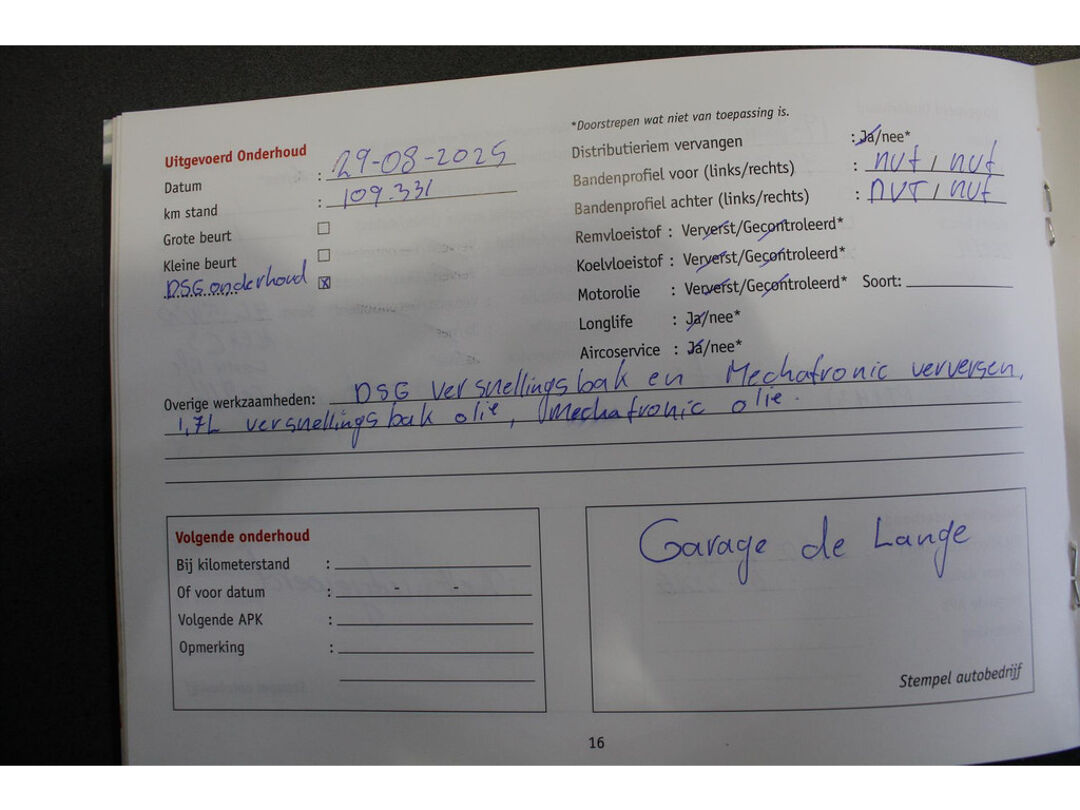 *Doorstrepen wat niet van toepassing is.
Uitgevoerd Onderhoud
Datum : 29-08-2025
km stand : 109.331
Grote beurt
Kleine beurt
DSG onderhoud
Distributieriem vervangen : Ja/nee*
Bandenprofiel voor (links/rechts) : nvt / nvt
Bandenprofiel achter (links/rechts) : nvt / nvt
Remvloeistof : Ververst/Gecontroleerd*
Koelvloeistof : Ververst/Gecontroleerd*
Motorolie : Ververst/Gecontroleerd* Soort:
Longlife : Ja/nee*
Aircoservice : Ja/nee*
Overige werkzaamheden: DSG versnellingsbak en Mechatronic verversen,
1,7L versnellingsbak olie, Mechatronic olie.
Volgende onderhoud
Bij kilometerstand :
Of voor datum : - -
Volgende APK :
Opmerking :
Garage de Lange
Stempel autobedrijf
16